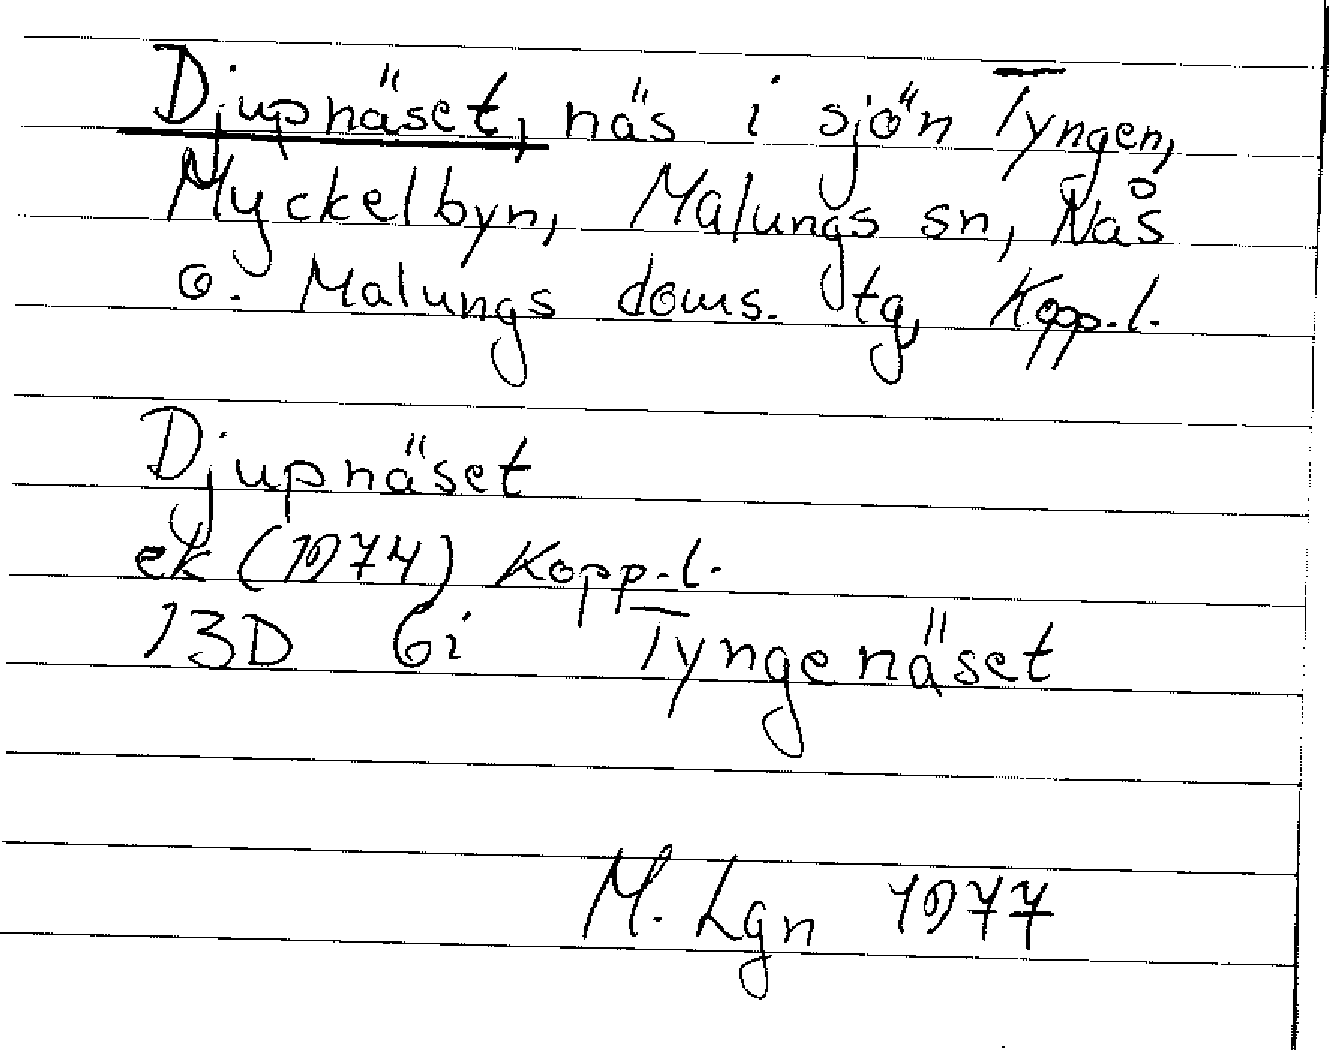 Djupnäset, näs i sjön Tyngen,
Myckelbyn, Malungs sn, Nås
o. Malungs doms. tg, Kopp.l.
Djupnäset
ek (1974) Kopp.l.
13D 6i Tyngenäset
M. Lgn 1977